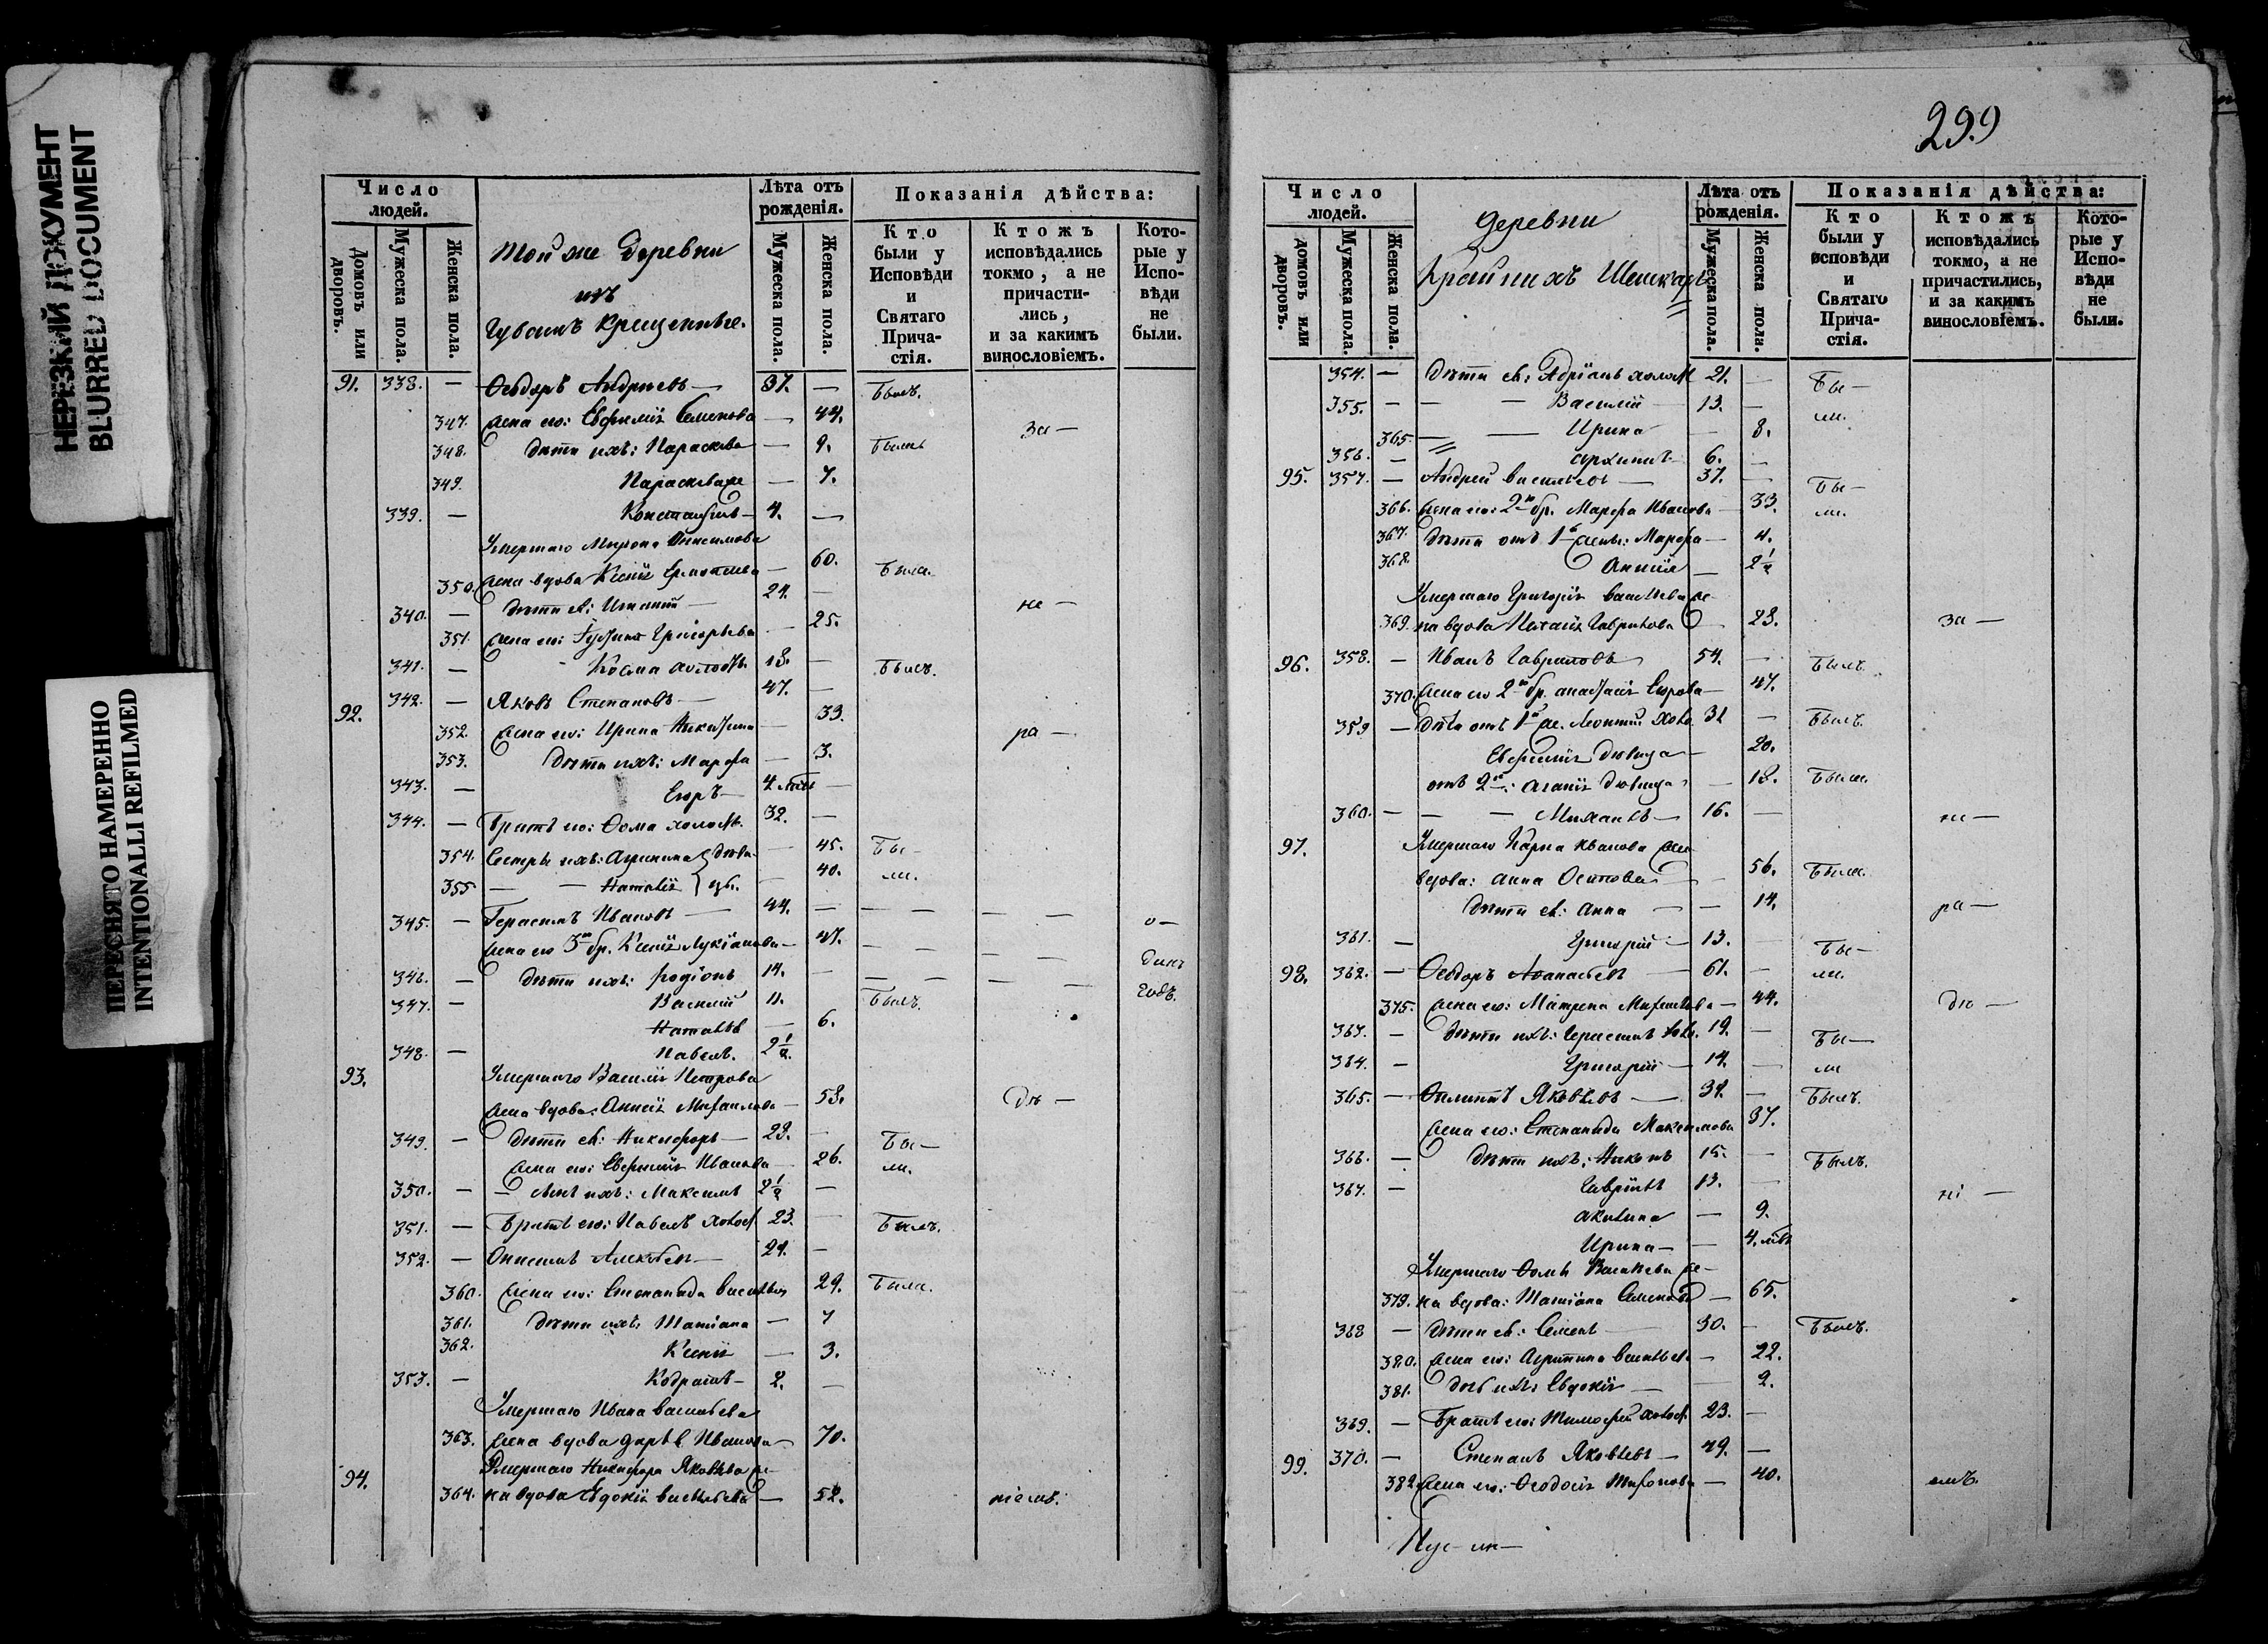 НЕРЕЗКИЙ ДОКУМЕНТ
BLURRED DOCUMENT
ПЕРЕСНЯТО НАМЕРЕННО
INTENTIONALLI REFILMED
Число людей.
Лѣта отъ рожденія.
Показанія дѣйства:
Домовъ или дворовъ.
Мужеска пола.
Женска пола.
Той же деревни
изъ
Чувашъ крещеныхъ.
Мужеска пола.
Женска пола.
Кто были у Исповѣди и Святаго Прича-стія.
Ктожъ исповѣдались токмо, а не причасти-лись, и за какимъ винословіемъ.
Кото-рые у Испо-вѣди не были.
91. 338. — Ѳеодоръ Андреевъ — 37. — Былъ.
347. жена его: Евфимія Семенова — 44. за —
348. дѣти ихъ: Параскева — 9. Были
349. Параскева же — 7.
339. — Константинъ — 4. —
Умершаго Мирона Онисимова
350. жена вдова Ксенія — 60. Была.
340. — дѣти ея: Игнатій — 24. — не —
351. жена его: Григорьева — 25.
341. — Косма холостъ. 18. — Былъ.
92. 342. — Яковъ Степановъ — 47. —
352. жена его: Ирина Никитина — 33. ра —
353. дѣти ихъ: Марфа — 3.
343. — Егоръ — 4 —
344. — Братъ его: Ѳома холостъ. 32. —
354. Сестры ихъ: Агрипина дѣви — 45. Бы —
355 — — Наталія цы. — 40. ли.
345. — Герасимъ Ивановъ — 44. — — — — — о —
жена его 3мъ бр. Ксенія Лукіанова — 47. — — — — динъ
346. — дѣти ихъ: Родіонъ 14. — — — — — годъ.
347. — Василій 11. Былъ.
Наталія — 6.
348. — Павелъ. 2 1/2.
93. Умершаго Василія Петрова
жена вдова: Анисія Михаилова — 58. дѣ —
349. — дѣти ея: Никифоръ — 23. — Бы —
жена его: Евфимія Иванова — 26. ли.
350. — — сынъ ихъ: Максимъ 2 1/2 —
351. — Братъ его: Павелъ холост 23. — Былъ.
352. — Онисимъ Алексѣевъ — 24. —
360. жена его: Степанида Васильева 29. Была.
361. дѣти ихъ: Татіана — 7
362. Ксенія — 3.
353. — Кодратъ — 2. —
Умершаго Ивана Васильева
363. жена вдова Дарья Иванова — 70.
94. Умершаго Никифора Яковлева же-
364. на вдова Евдокія Васильева — 52. ніемъ.
299
Число людей.
Лѣта отъ рожденія.
Показанія дѣйства:
домовъ или дворовъ.
Мужеска пола.
Женска пола.
Деревни
Крайнихъ
Мужеска пола.
Женска пола.
Кто были у исповѣди и Святаго Прича-стія.
Ктожъ исповѣдались токмо, а не причастились, и за какимъ винословіемъ.
Кото-рые у Испо-вѣди не были.
354. — Дѣти ея: Адріанъ холост 21. — Бы —
355. — — — Василій — 13. — ли.
365. — — Ирина — 8.
356. — Архипъ — 6. —
95. 357. — Андрей Васильевъ — 37. — Бы —
366. жена его: 2мъ бр. Марфа Иванова — 33. ли.
367. Дѣти отъ 1й жены: Марфа — 4.
368. Анисія — 2 1/2
Умершаго Григорія Васильева же-
369. на вдова Наталія Гаврилова — 28. за —
96. 358. — Иванъ Гавриловъ 54. — Былъ.
370. жена его 2мъ бр. Анастасія Егорова — 47.
359 — дѣти отъ 1й же. Леонтій холо 31 — Былъ.
Евфимія дѣвица — 20.
отъ 2й: Агапія дѣвица — 18. Были.
360. — — — Михаилъ — 16. — ни —
97. Умершаго Карпа Иванова жена
вдова: Анна Осипова — 56. Была.
Дѣти ея: Анна — — 14. ра —
361. — Григорій — 13. — Бы —
98. 362. — Ѳеодоръ Аѳанасьевъ — 61. — ли.
375. жена его: Матрена Михайлова — 44. дѣ —
363. — дѣти ихъ: Герасимъ холо. 19. — Бы —
364. — Григорій — 14. — ли
365. — Филиппъ Яковлевъ — 34. — Былъ.
жена его: Степанида Максимова 37.
366. — дѣти ихъ: Никонъ 15. — Былъ.
367. — Гавріилъ 13. — ні —
Акилина — 9.
Ирина — — 4.
Умершаго Ѳомы Васильева же-
379. на вдова: Татіана Семенова — 65.
368 — дѣти ея: Семенъ — 30. — Былъ.
380. жена его: Агрипина Васильева — 22.
381. дочь ихъ: Евдокія — 2.
369. — Братъ его: Тимофей холост. 23. —
99. 370. — Степанъ Яковлевъ — 49. —
382 жена его: Ѳеодосія — 40. емъ.